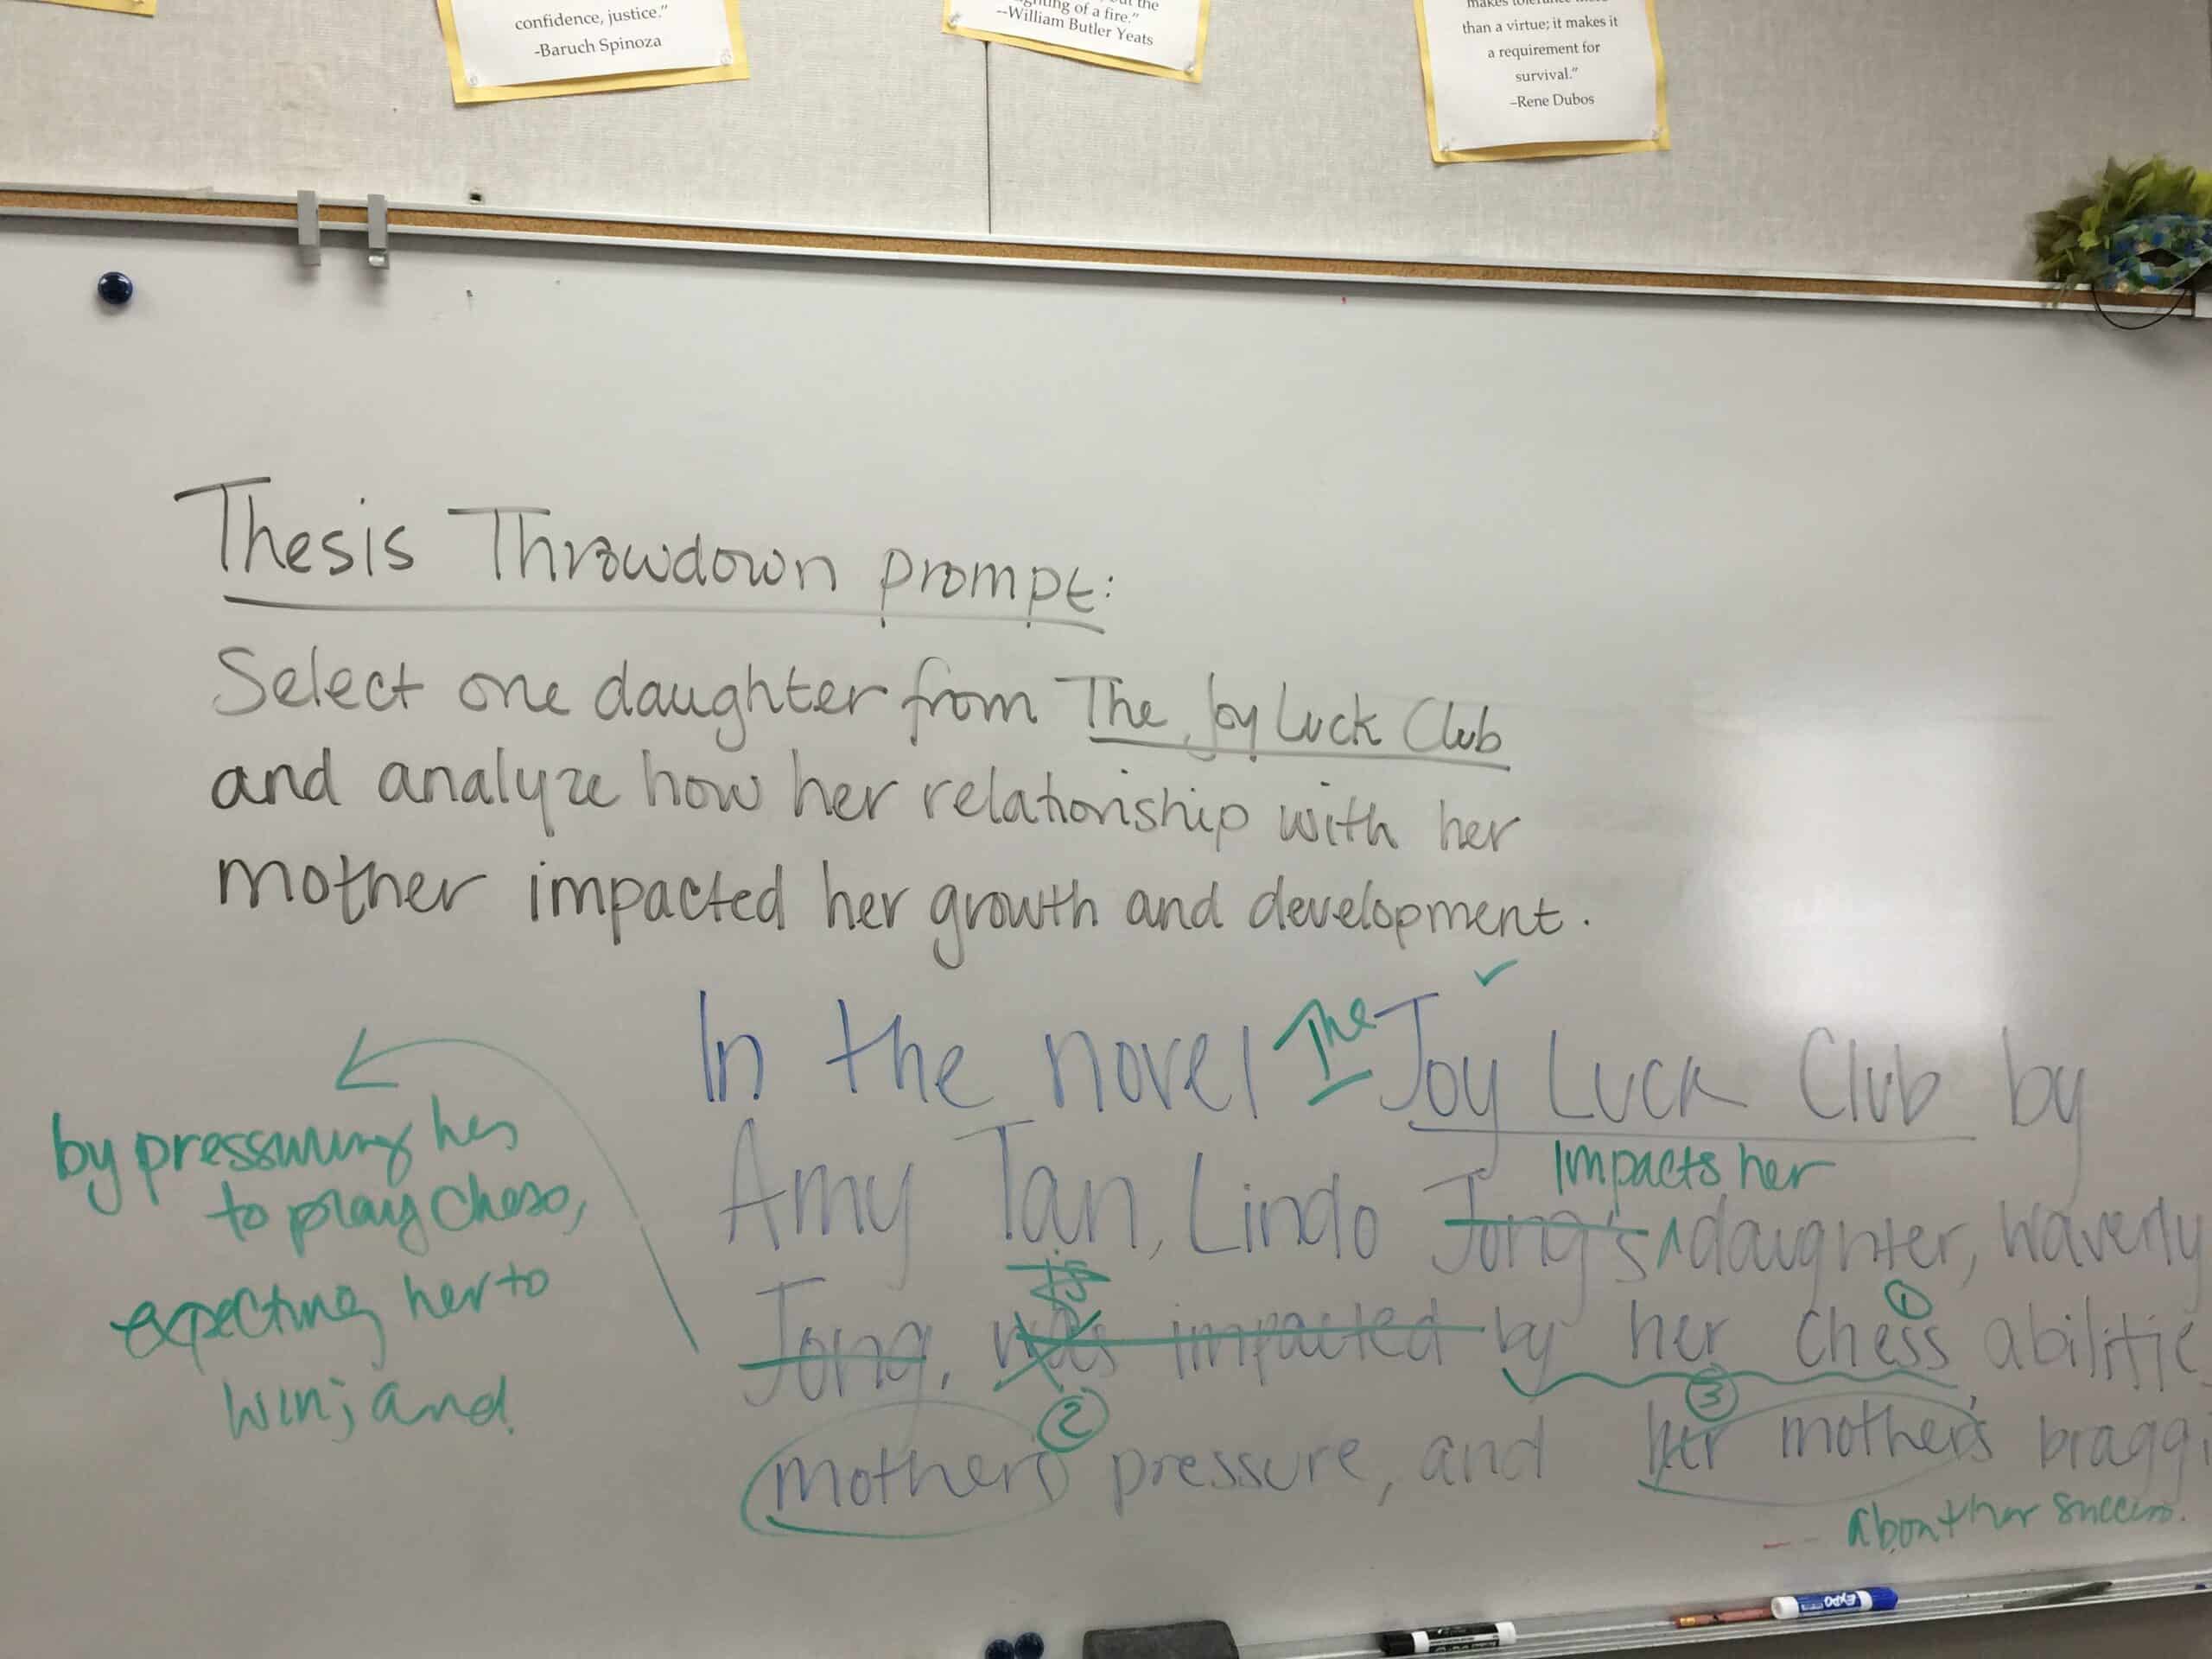 confidence, justice."
-Baruch Spinoza
but the
of a fire."
--William Butler Yeats
makes tolerance more
than a virtue; it makes it
a requirement for
survival."
–Rene Dubos
Thesis Throwdown prompt:
Select one daughter from The Joy Luck Club
and analyze how her relationship with her
mother impacted her growth and development.
In the novel The Joy Luck Club by
Impacts her
Amy Tan, Lindo Jong's daughter, Waverly
is
Jong, was impacted by her chess abilitie
1
2
3
mother's pressure, and her mother's braggi
about her success.
by pressuring her
to play chess,
expecting her to
win; and
EXPO